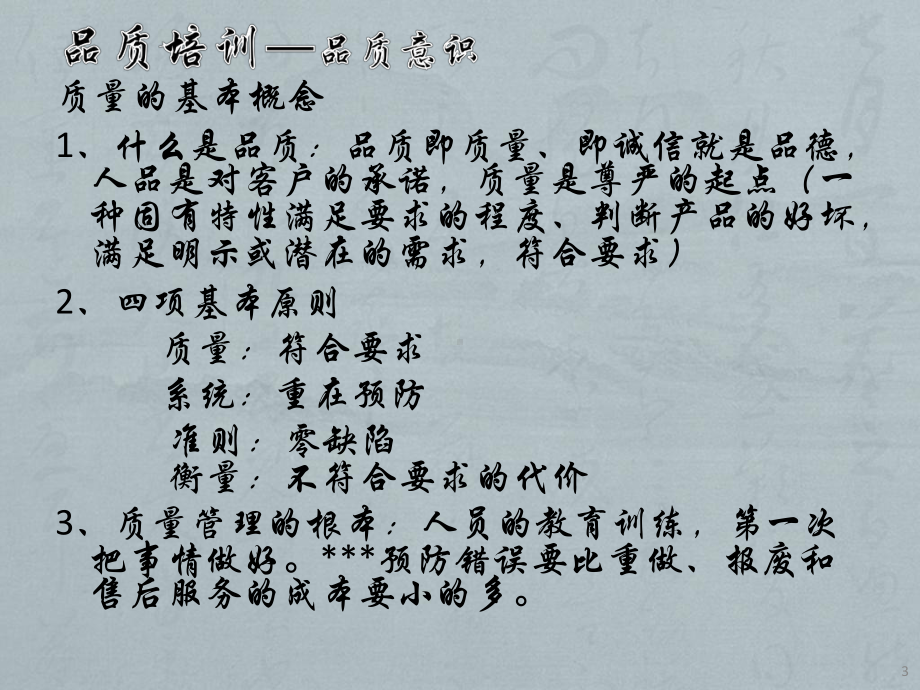 品质培训—品质意识
质量的基本概念
1、什么是品质：品质即质量、即诚信就是品德，
人品是对客户的承诺，质量是尊严的起点（一
种固有特性满足要求的程度、判断产品的好坏，
满足明示或潜在的需求，符合要求）
2、四项基本原则
质量：符合要求
系统：重在预防
准则：零缺陷
衡量：不符合要求的代价
3、质量管理的根本：人员的教育训练，第一次
把事情做好。***预防错误要比重做、报废和
售后服务的成本要小的多。
3